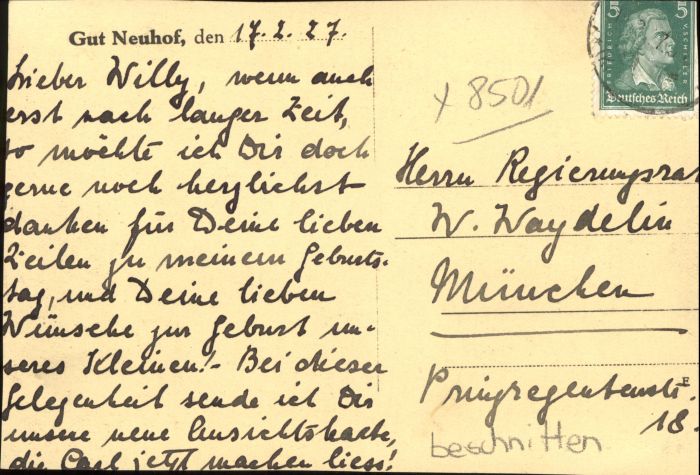 Gut Neuhof, den 17.2.27.
Lieber Willy, wenn auch
erst nach langer Zeit,
so möchte ich Dir doch
gerne noch herzlichst
danken für Deine lieben
Zeilen zu meinem Geburts-
tag, und Deine lieben
Wünsche zur Geburt un-
seres Kleinen! - Bei dieser
Gelegenheit sende ich Dir
unsere neue Ansichtskarte,
die Carl jetzt machen liess!
x 8501
5 5
FRIEDRICH V. SCHILLER
Deutsches Reich
Herrn Regierungsrat
W. Waydelin
München
Prinzregentenstr.
18.
beschnitten